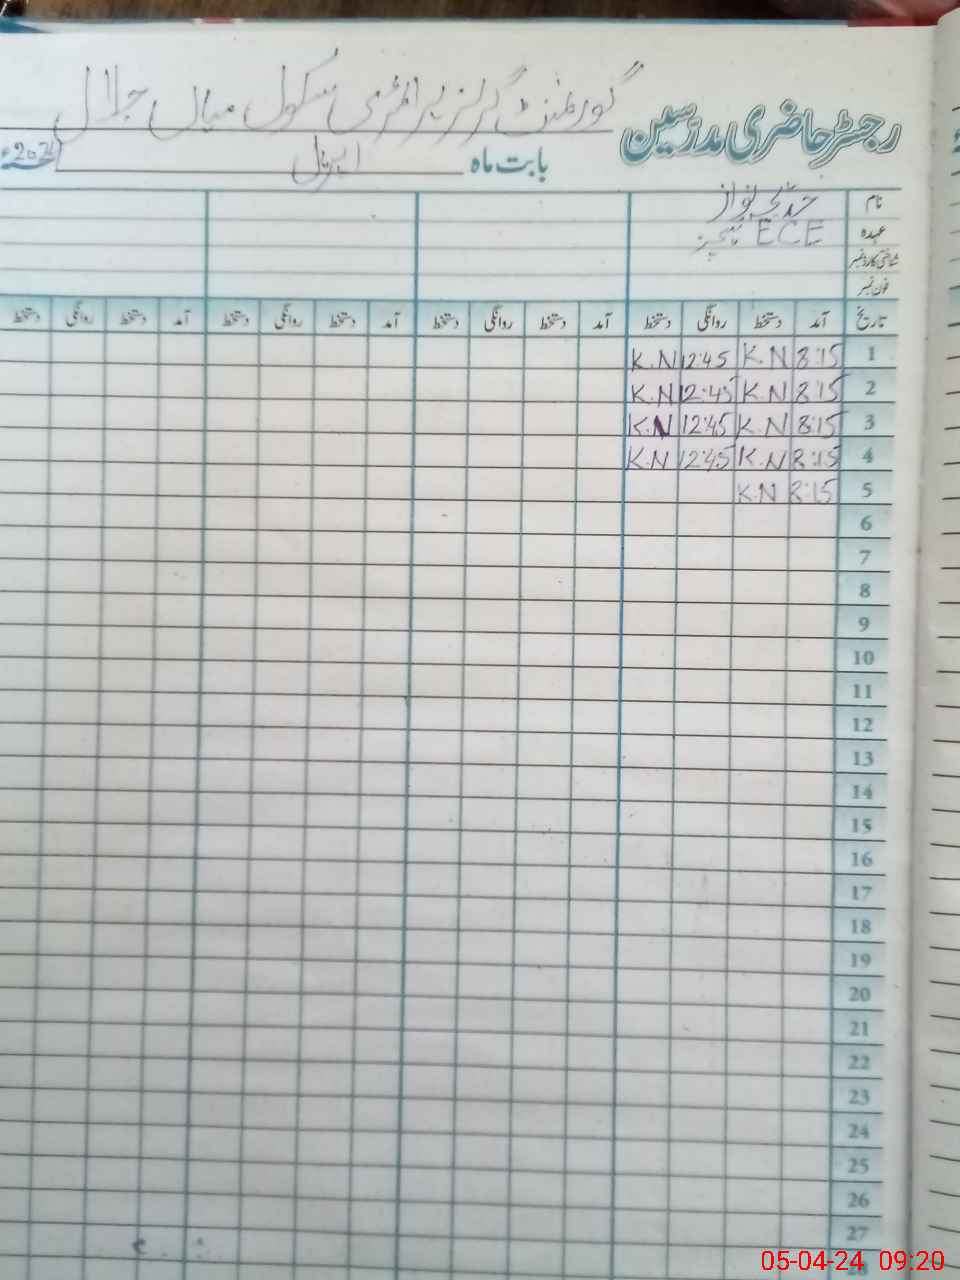 رجسٹر حاضری مدرسین گورنمنٹ گرلز پرائمری سکول میاں جلال
بابت ماہ اپریل 2024ء
نام خدیجہ نواز
عہدہ ECE ٹیچر
شناختی کارڈ نمبر
فون نمبر
تاریخ آمد دستخط روانگی دستخط آمد دستخط روانگی دستخط آمد دستخط روانگی دستخط آمد دستخط روانگی دستخط
1 8:15 K.N 12:45 K.N
2 8:15 K.N 12:45 K.N
3 8:15 K.N 12:45 K.N
4 8:15 K.N 12:45 K.N
5 8:15 K.N
6
7
8
9
10
11
12
13
14
15
16
17
18
19
20
21
22
23
24
25
26
27
28
05-04-24 09:20